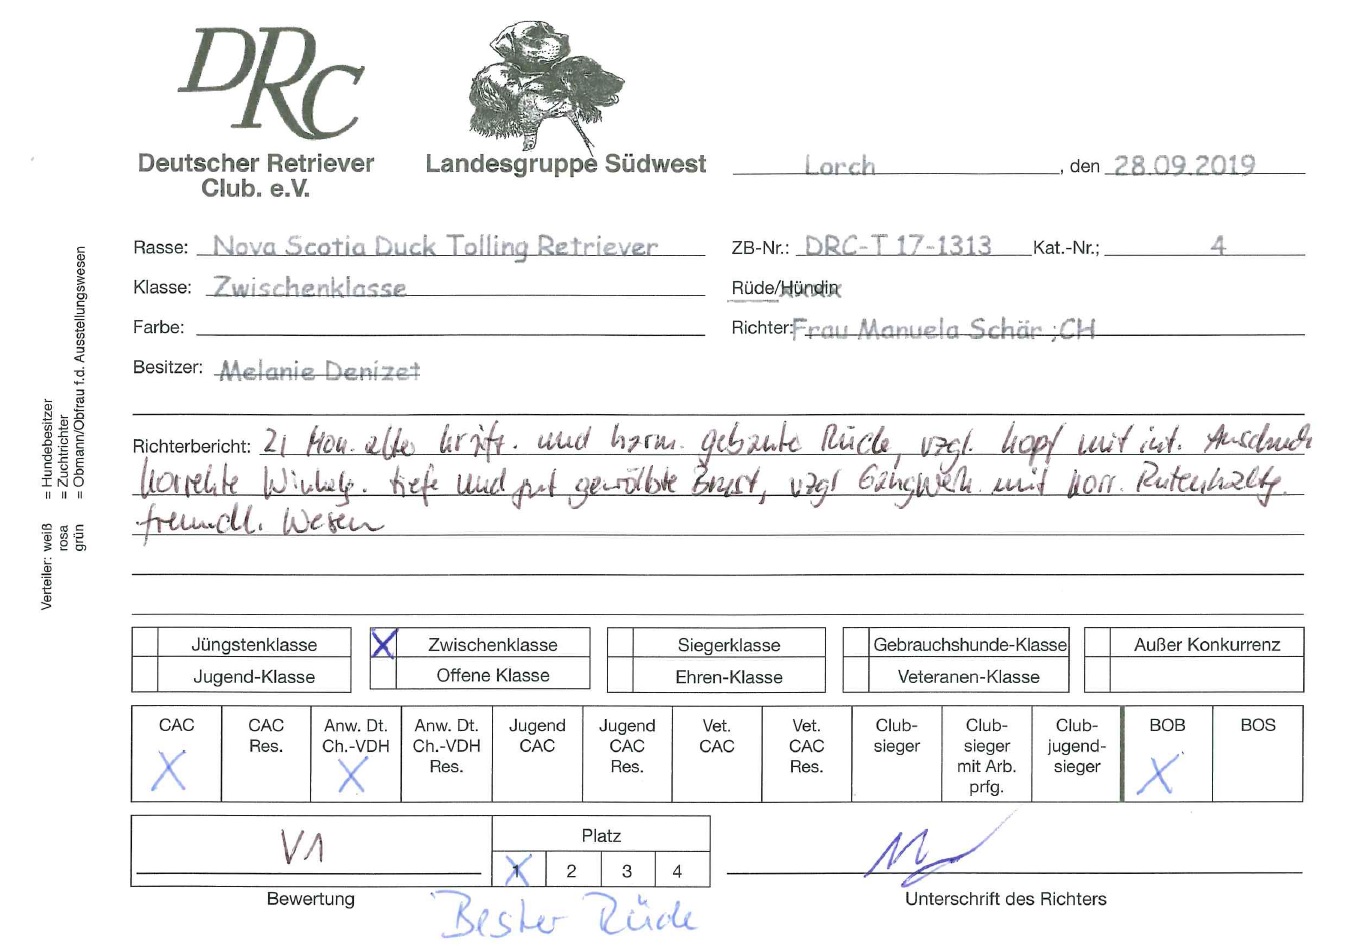 DRC
Deutscher Retriever
Club. e.V.
Landesgruppe Südwest
Lorch, den 28.09.2019
Rasse: Nova Scotia Duck Tolling Retriever
ZB-Nr.: DRC-T 17-1313 Kat.-Nr.; 4
Klasse: Zwischenklasse
Rüde/Hündin
Farbe:
Richter: Frau Manuela Schär ;CH
Besitzer: Melanie Denizet
Richterbericht: 21 Mon. alter kräft. und harm. gebaute Rüde, vzgl. Kopf mit int. Ausdruck
korrekte Winkelg. tiefe und gut gewölbte Brust, vzgl Gangwerk mit korr. Rutenhaltg.
freundl. Wesen
Verteiler: weiß = Hundebesitzer
rosa = Zuchtrichter
grün = Obmann/Obfrau f.d. Ausstellungswesen
Jüngstenklasse
X Zwischenklasse
Siegerklasse
Gebrauchshunde-Klasse
Außer Konkurrenz
Jugend-Klasse
Offene Klasse
Ehren-Klasse
Veteranen-Klasse
CAC
X
CAC
Res.
Anw. Dt.
Ch.-VDH
X
Anw. Dt.
Ch.-VDH
Res.
Jugend
CAC
Jugend
CAC
Res.
Vet.
CAC
Vet.
CAC
Res.
Club-
sieger
Club-
sieger
mit Arb.
prfg.
Club-
jugend-
sieger
BOB
X
BOS
V1
Bewertung
Platz
1 2 3 4
X
Bester Rüde
Unterschrift des Richters